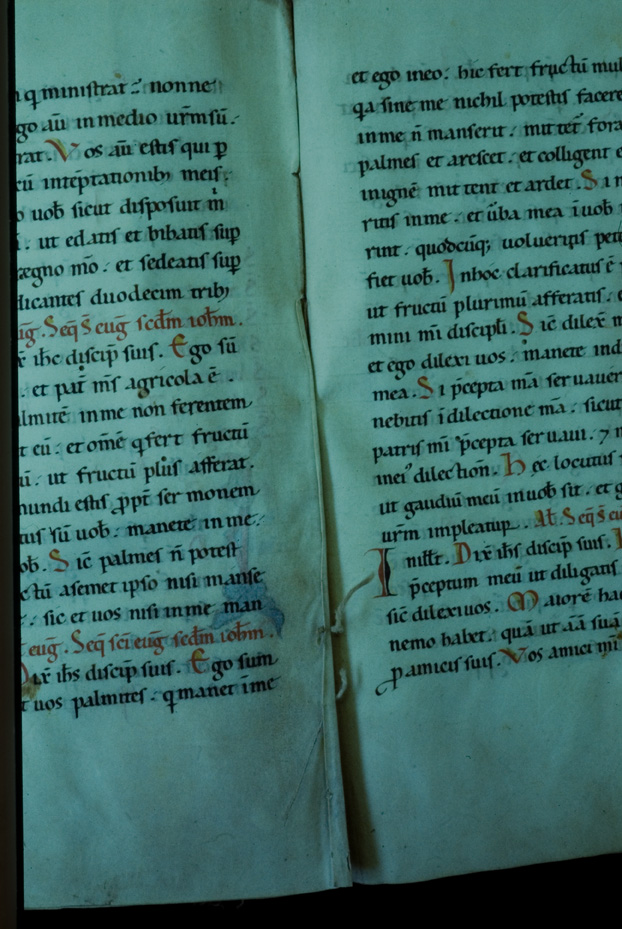 q ministrat. nonne
go aū in medio ur̄m sū.
rat. Vos aū estis qui p̄
cū in tēptationib; meis.
uob̄ sicut disposuit m̄
. ut edatis et bibatis sup̄
regno m̄o. et sedeatis sup̄
dicantes duodecim trib;
eūg. Seq̄ s̄ eūg scd̄m ioh̄m.
ih̄c discip̄ suis. Ego sū
. et pat̄ m̄s agricola ē.
lmitē in me non ferentem
t eū. et om̄e q̄ fert fructū
ū. ut fructū plus afferat.
mundi estis p̄pt̄ sermonem
tus sū uob̄. manete in me.
ob̄. Sic palmes n̄ potest
ctū a semet ipso nisi manse
. sic et uos nisi in me man
euḡ. Seq̄ sc̄i eūg scd̄m ioh̄m.
Dix̄ ih̄s discip̄ suis. Ego sum
t uos palmites. q manet ī me
et ego in eo. hic fert fructū mul
q̄a sine me nichil potestis facere
in me n̄ manserit. mittet̄ fora
palmes et arescet. et colligent e
in ignē mittent et ardet. Si
ritis in me. et ūba mea ī uob̄
rint. quodcūq; uolueritis pet
fiet uob̄. In hoc clarificatus ē
ut fructū plurimū afferatis.
mini m̄i discipl̄i. Sic dilex̄
et ego dilexi uos. manete in d
mea. Si p̄cepta m̄a seruauer
nebitis ī dilectione m̄a. sicut
patris m̄i p̄cepta seruaui. 7 m
in ei' dilection̄. hec locutus
ut gaudiū meū in uob̄ sit. et g
ur̄m impleatur. Seq̄ s̄ eū
In ill̄t. Dix̄ ih̄s discip̄ suis.
p̄ceptum meū ut diligatis
sic̄ dilexi uos. Maiorē ha
nemo habet. quā ut aīā suā
p̄ amicis suis. Vos amici m̄i